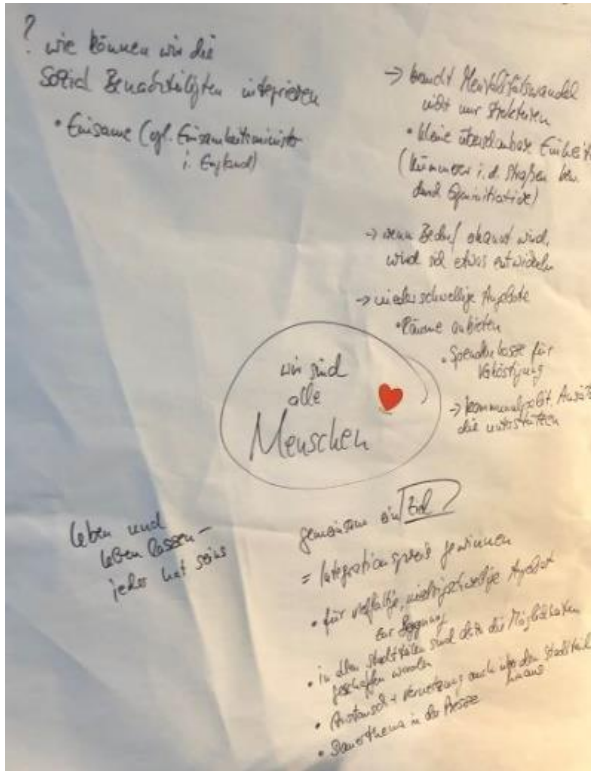 ? wie können wir die
sozial Benachteiligten integrieren
• Einsame (vgl. Einsamkeitsminister
i. England)
→ braucht Mentalitätswandel
nicht nur Strukturen
• kleine überschaubare Einheit
(Kümmerer i. d. Straßen bzw.
durch Eigeninitiative)
→ wenn Bedarf erkannt wird,
wird sich etwas entwickeln
→ niederschwellige Angebote
• Räume anbieten
• Spendenkasse für
Verköstigung
→ kommunalpolit. Ansätze
die unterstützen
wir sind
alle
Menschen
leben und
leben lassen –
jeder hat seins
gemeinsam ein Ziel
= Integrationspreis gewinnen
• für vielfältige, niedrigschwellige Angebote
zur Begegnung
• in allen Stadtteilen sind dafür die Möglichkeiten
geschaffen worden
• Austausch + Vernetzung auch über den Stadtteil
hinaus
• Dauerthema in der Presse